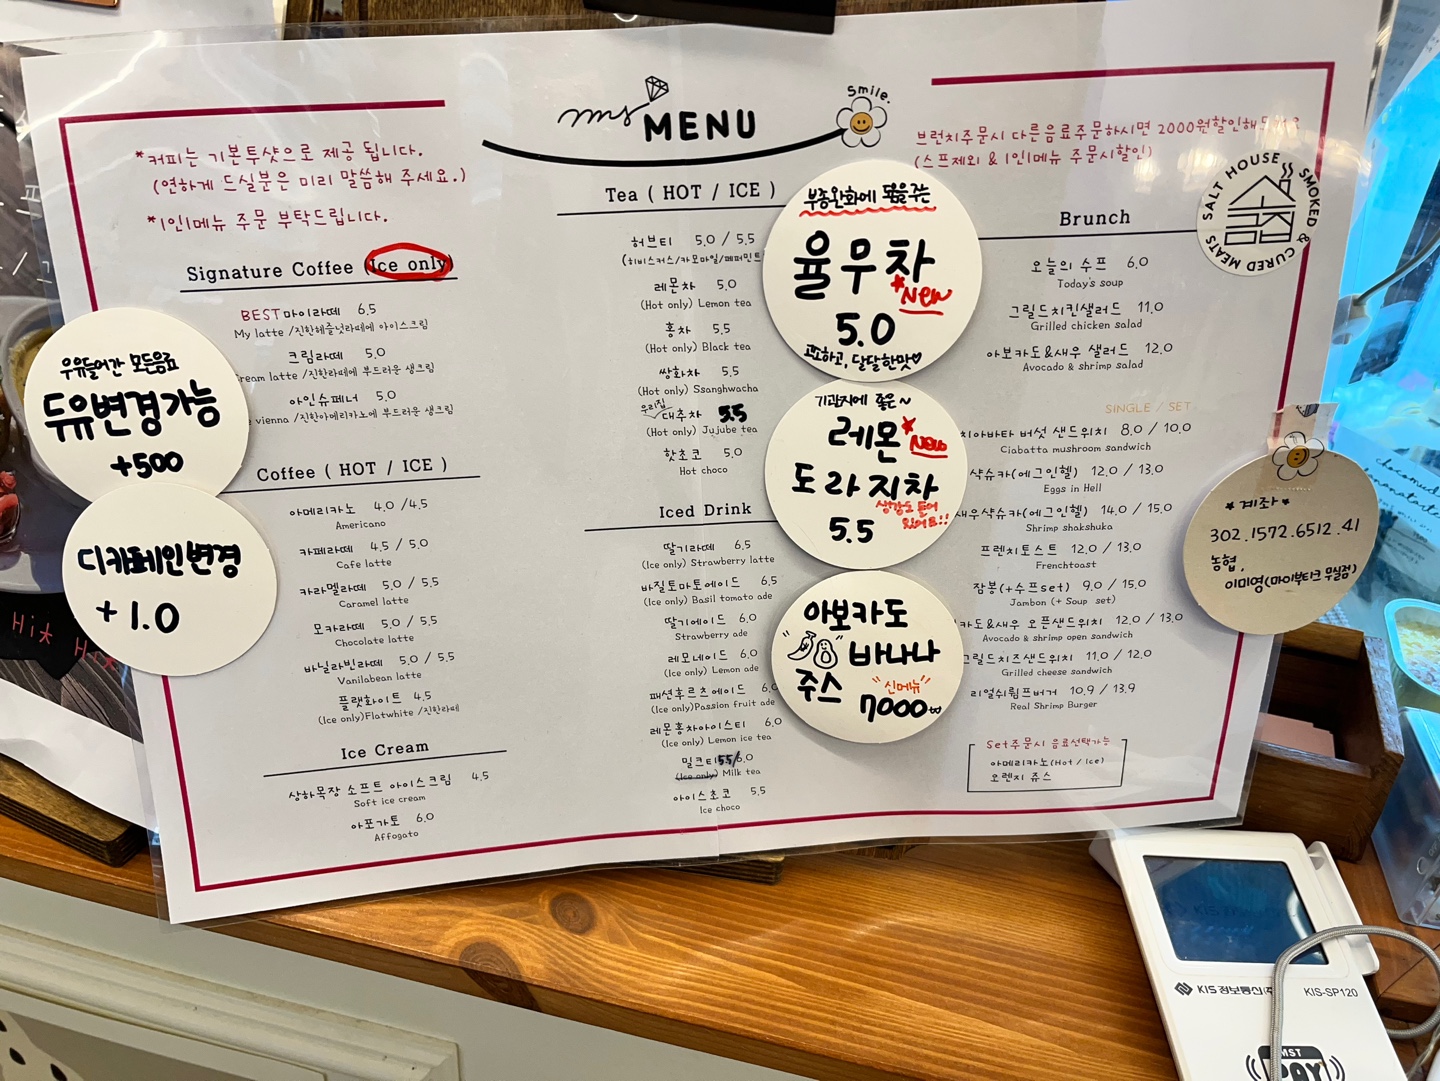 ms MENU
Smile.
*커피는 기본투샷으로 제공 됩니다.
(연하게 드실분은 미리 말씀해 주세요.)
*1인1메뉴 주문 부탁드립니다.
Signature Coffee (Ice only)
BEST 마이라떼 6.5
My latte /진한헤즐넛라떼에 아이스크림
크림라떼 5.0
ream latte /진한라떼에 부드러운 생크림
아인슈페너 5.0
vienna /진한아메리카노에 부드러운 생크림
우유들어간 모든음료
두유변경가능
+500
디카페인변경
+1.0
Coffee ( HOT / ICE )
아메리카노 4.0 /4.5
Americano
카페라떼 4.5 / 5.0
Cafe latte
카라멜라떼 5.0 / 5.5
Caramel latte
모카라떼 5.0 / 5.5
Chocolate latte
바닐라빈라떼 5.0 / 5.5
Vanilabean latte
플랫화이트 4.5
(Ice only)Flatwhite /진한라떼
Ice Cream
상하목장 소프트 아이스크림 4.5
Soft ice cream
아포가토 6.0
Affogato
Tea ( HOT / ICE )
허브티 5.0 / 5.5
(히비스커스/카모마일/페퍼민트
레몬차 5.0
(Hot only) Lemon tea
홍차 5.5
(Hot only) Black tea
쌍화차 5.5
(Hot only) Ssanghwacha
우리집
대추차 5.5
(Hot only) Jujube tea
핫초코 5.0
Hot choco
Iced Drink
딸기라떼 6.5
(Ice only) Strawberry latte
바질토마토에이드 6.5
(Ice only) Basil tomato ade
딸기에이드 6.0
Strawberry ade
레모네이드 6.0
(Ice only) Lemon ade
패션후르츠에이드 6.0
(Ice only)Passion fruit ade
레몬홍차아이스티 6.0
(Ice only) Lemon ice tea
밀크티 5.5/6.0
(Ice only) Milk tea
아이스초코 5.5
Ice choco
부종완화에 도움을주는
율무차
*New
5.0
고소하고, 달달한맛♡
기관지에 좋은~
레몬 *New
도라지차
생강도 들어
있어요!!
5.5
아보카도
바나나
주스
"신메뉴"
7000₩
브런치주문시 다른음료주문하시면 2000원할인해
(스프제외 & 1인1메뉴 주문시할인)
SALT HOUSE SMOKED & CURED MEATS
Brunch
오늘의 수프 6.0
Today's soup
그릴드치킨샐러드 11.0
Grilled chicken salad
아보카도&새우 샐러드 12.0
Avocado & shrimp salad
SINGLE / SET
치아바타 버섯 샌드위치 8.0 / 10.0
Ciabatta mushroom sandwich
샥슈카(에그인헬) 12.0 / 13.0
Eggs in Hell
새우샥슈카(에그인헬) 14.0 / 15.0
Shrimp shakshuka
프렌치토스트 12.0 / 13.0
Frenchtoast
잠봉(+수프set) 9.0 / 15.0
Jambon (+ Soup set)
카도&새우 오픈샌드위치 12.0 / 13.0
Avocado & shrimp open sandwich
그릴드치즈샌드위치 11.0 / 12.0
Grilled cheese sandwich
리얼쉬림프버거 10.9 / 13.9
Real Shrimp Burger
Set주문시 음료선택가능
아메리카노(Hot / Ice)
오렌지 쥬스
*계좌*
302.1572.6512.41
농협,
이미영(마이부티크 무실점)
KIS 정보통신(주) KIS-SP120
MST
PAY